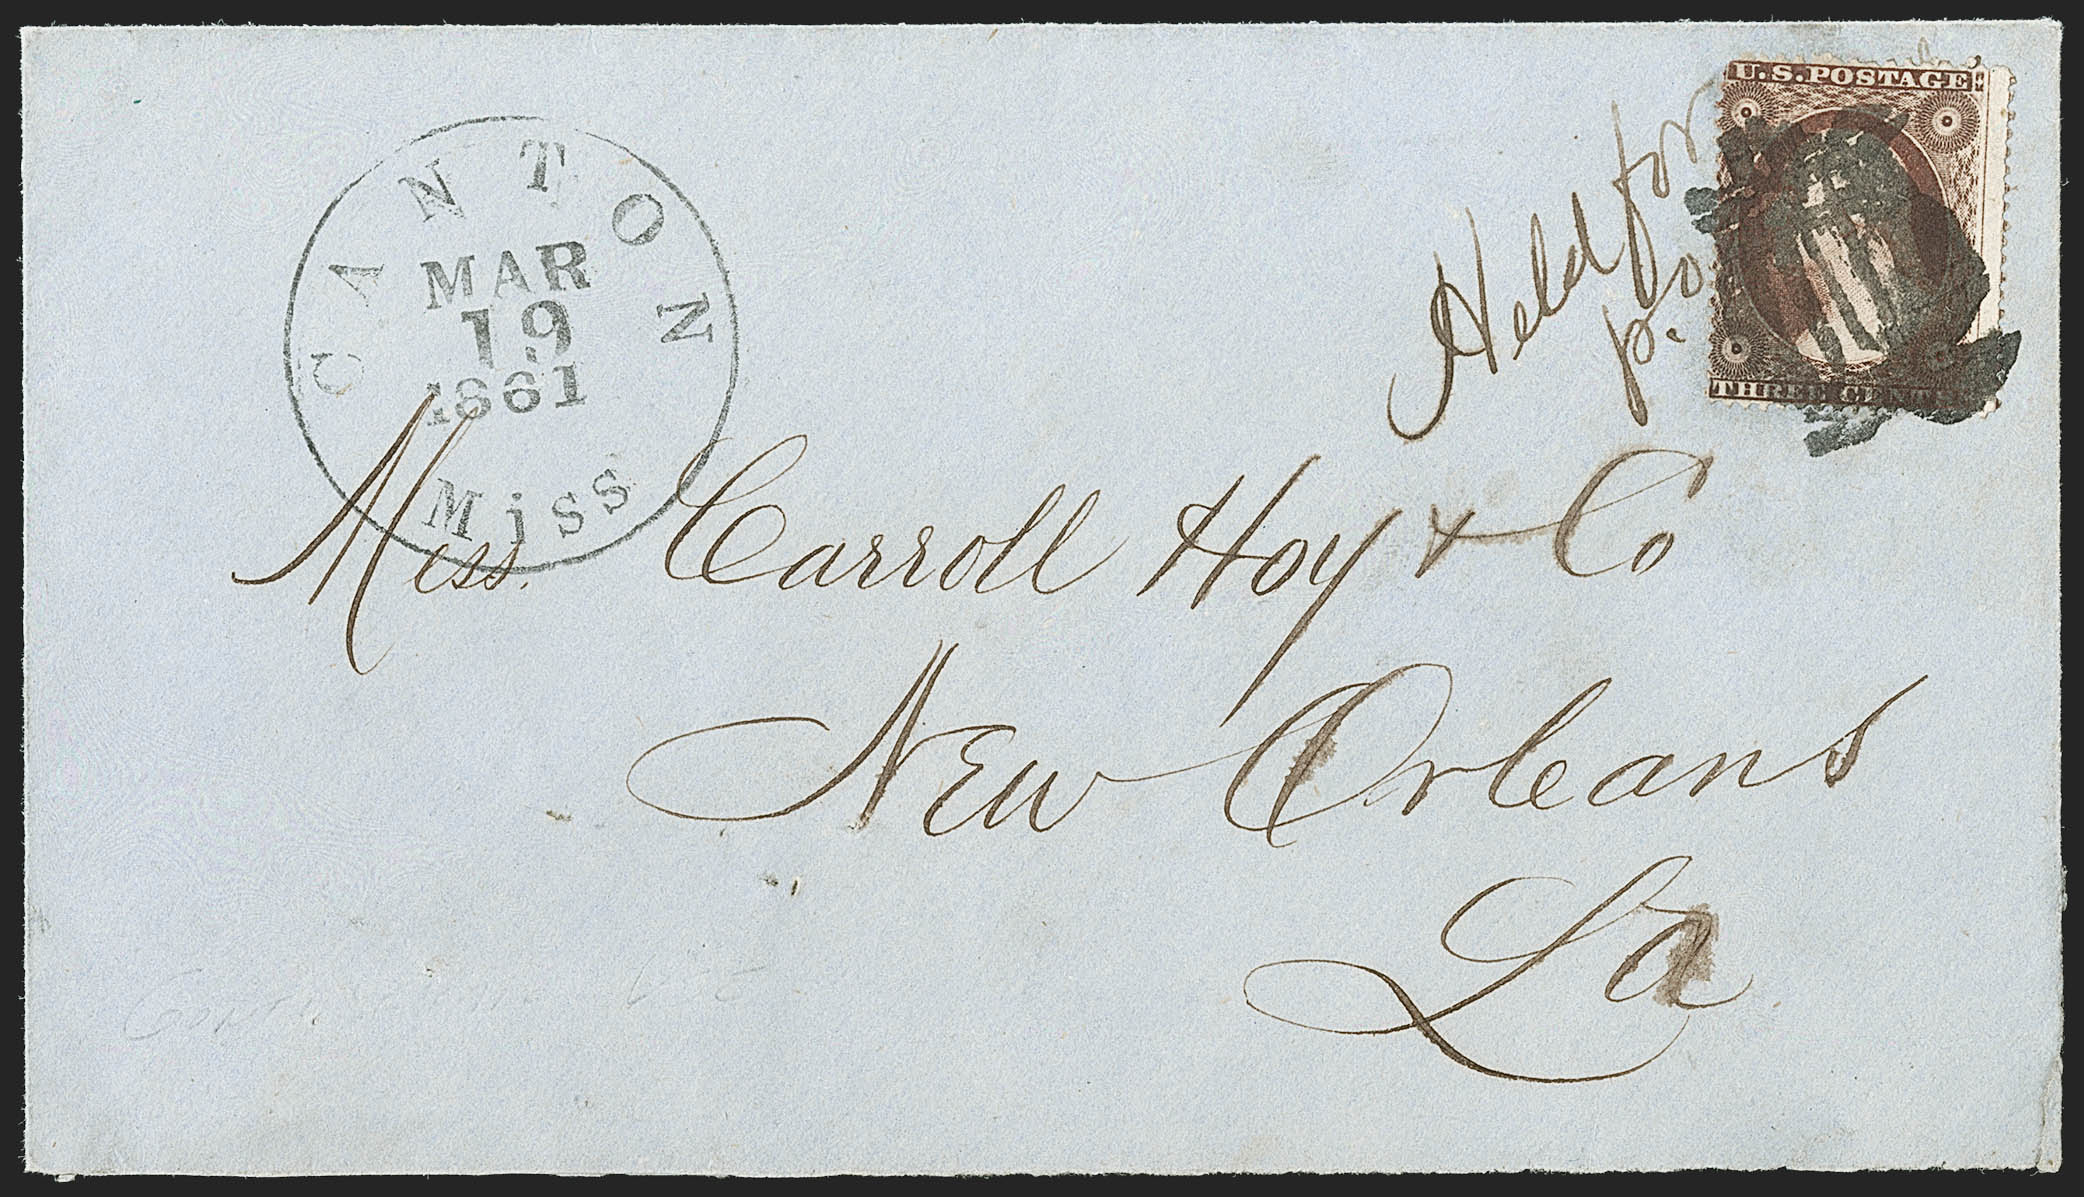 U.S. POSTAGE
Held for
p. o
THREE CENTS
CANTON
MAR
19
1861
Miss
Mess. Carroll Hoy & Co
New Orleans
La